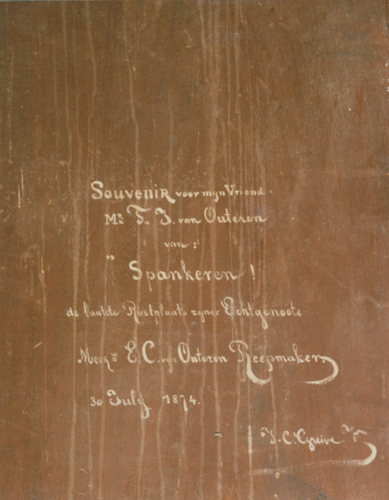 Souvenir voor mijn Vriend.
Mr. F. J. van Outeren
van:
" Spankeren!
de laatste Rustplaats zyner Echtgenoote
Mevr. E. C. van Outeren Reepmaker
30 July 1874.